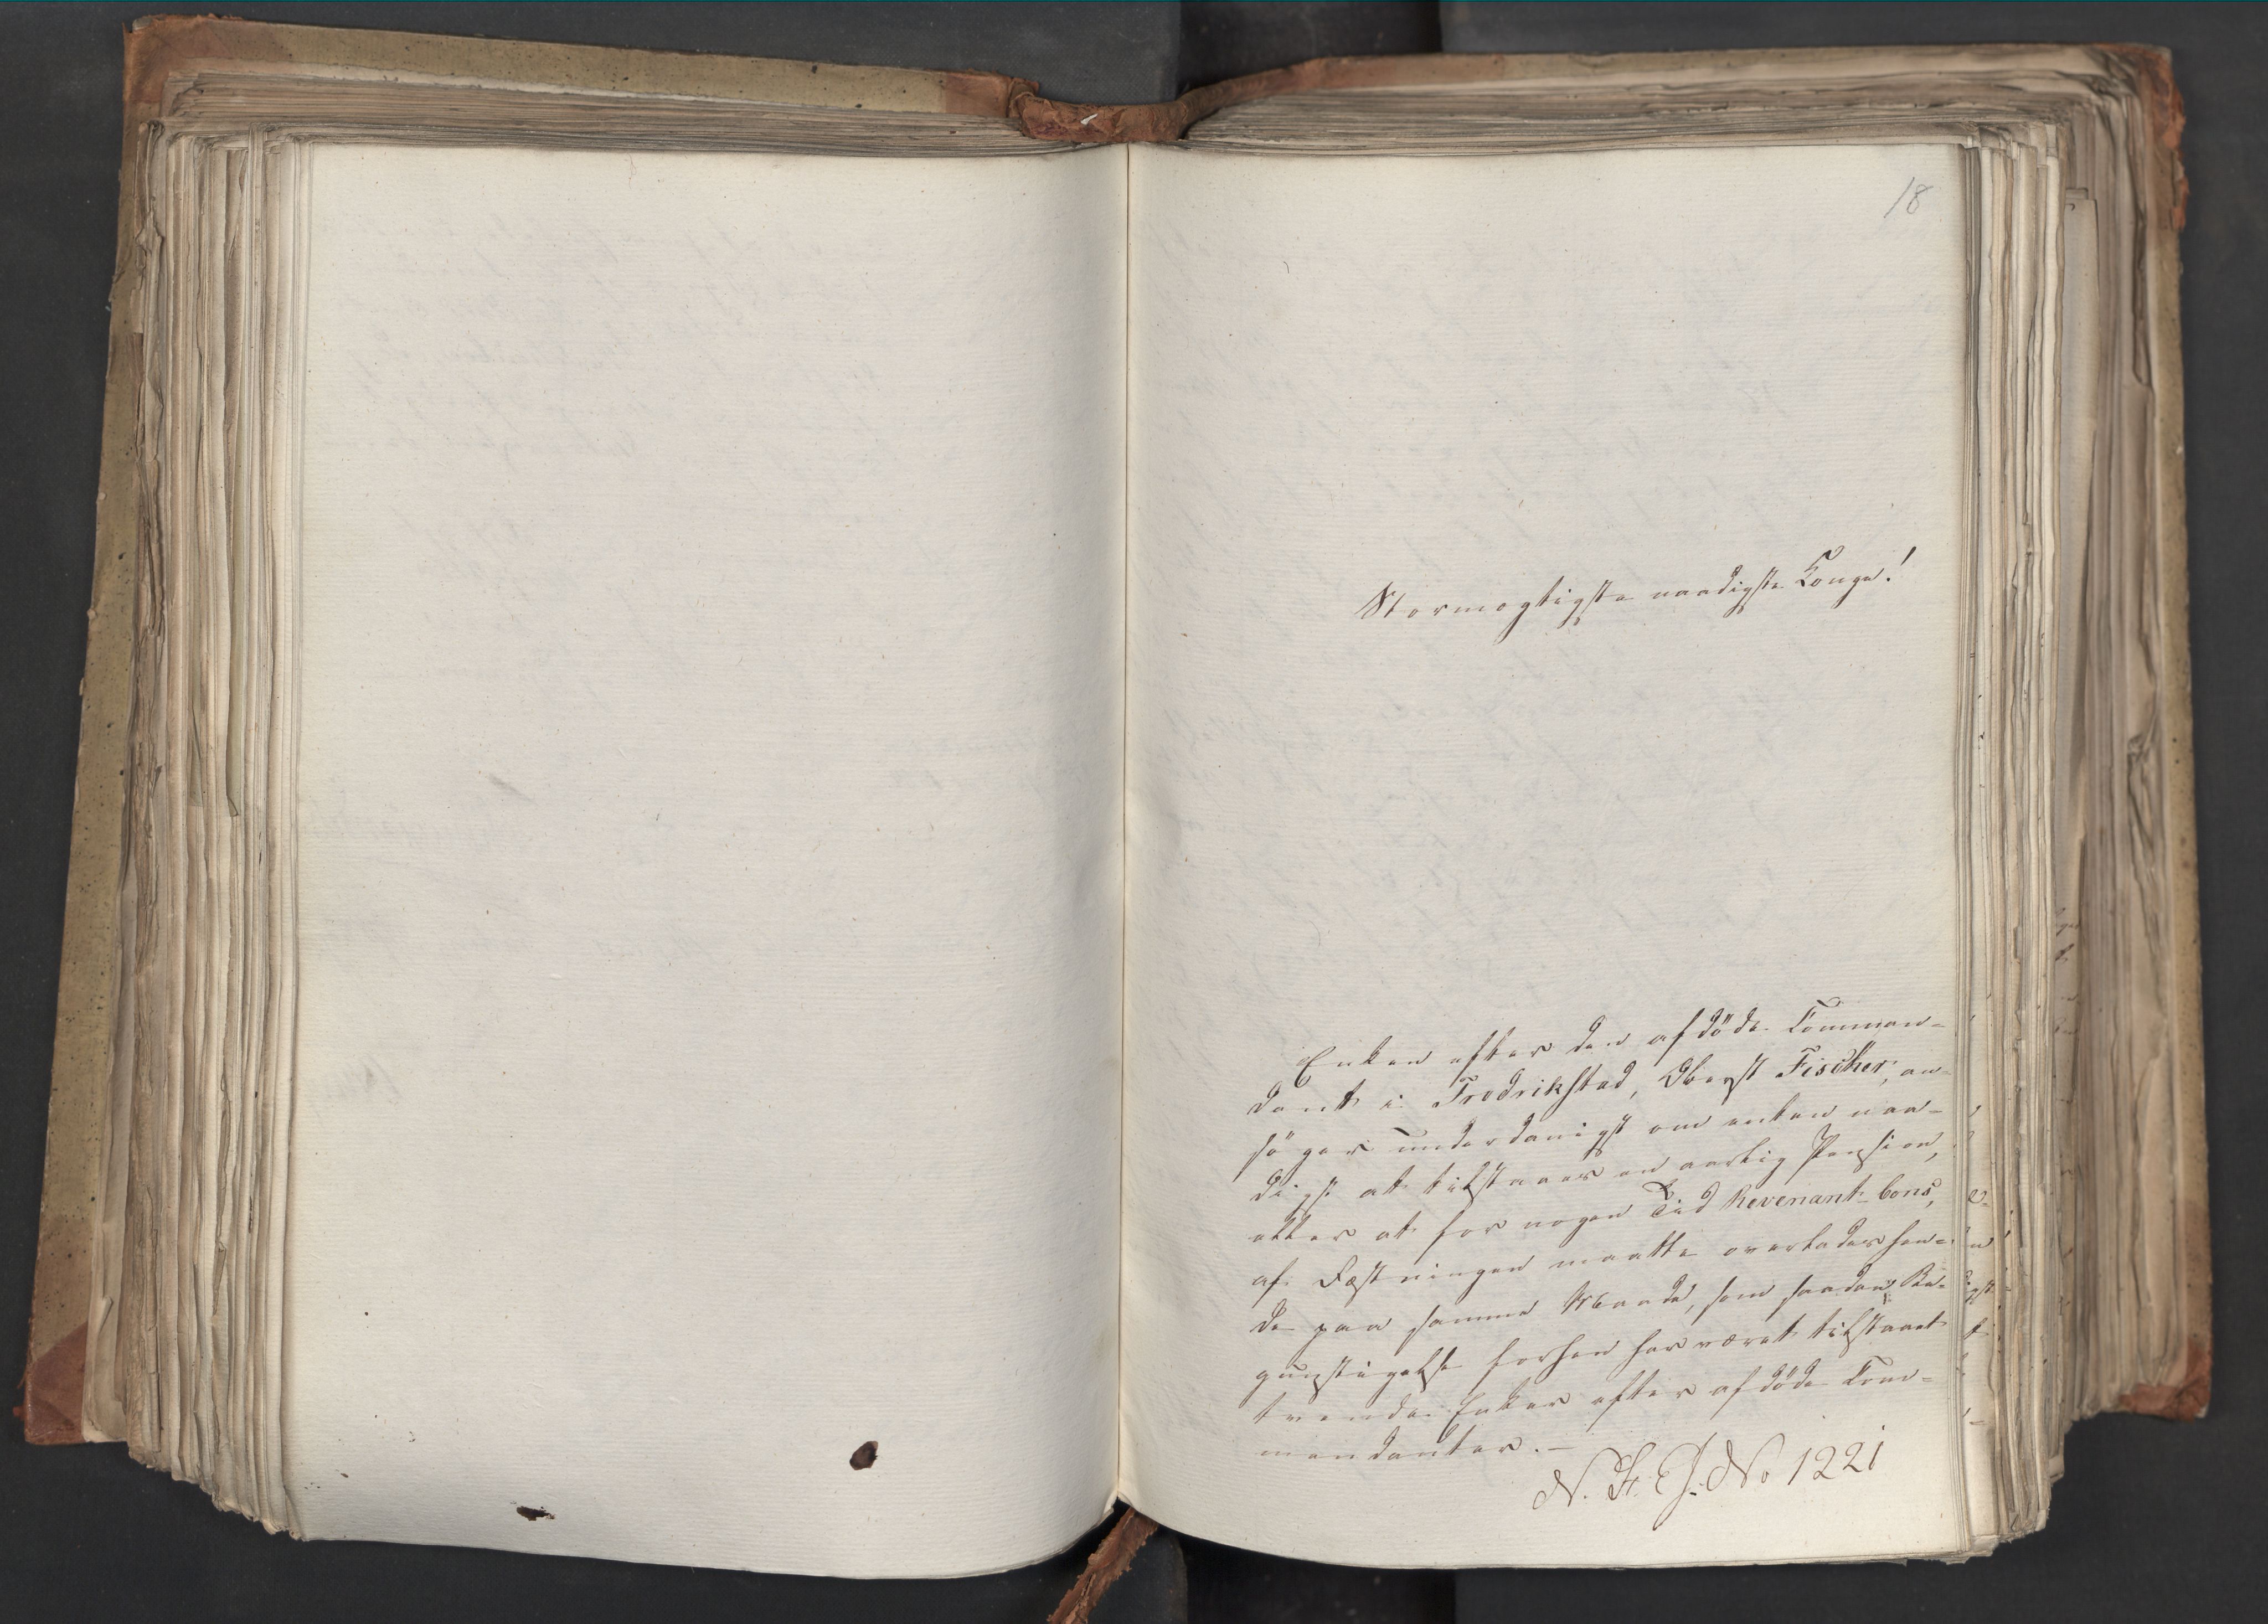 18
Stormægtigste naadigste Konge!
Enken efter den afdöde Comman-
dant i Fredrikstad, Oberst Fischer, an-
söger underdanigst om enten naa-
digst at tilstaaes en aarlig Pension,
eller at for nogen Tid Revenant-bons,
af Fæstningen maatte overlades hen-
de paa samme Maade, som saadan Be-
gunstigelse forhen har været tilstaaet
trende Enker efter afdöde Com-
mandanter. –
N. F. J. No 1221